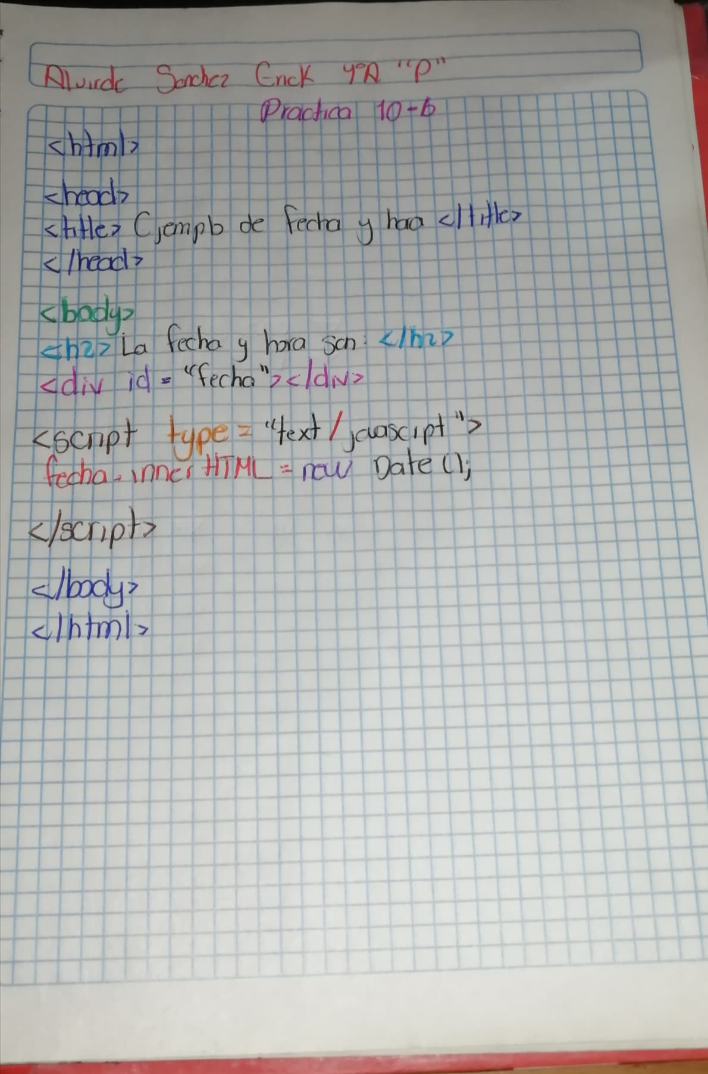 Alvirde Sanchez Erick 4°A "P"
Practica 10-b
<html>
<head>
<title> Ejemplo de fecha y hora </title>
</head>
<body>
<h2> La fecha y hora son: </h2>
<div id = "fecha"></div>
<script type = "text/javascipt">
fecha.innerHTML = new Date ();
</script>
</body>
</html>